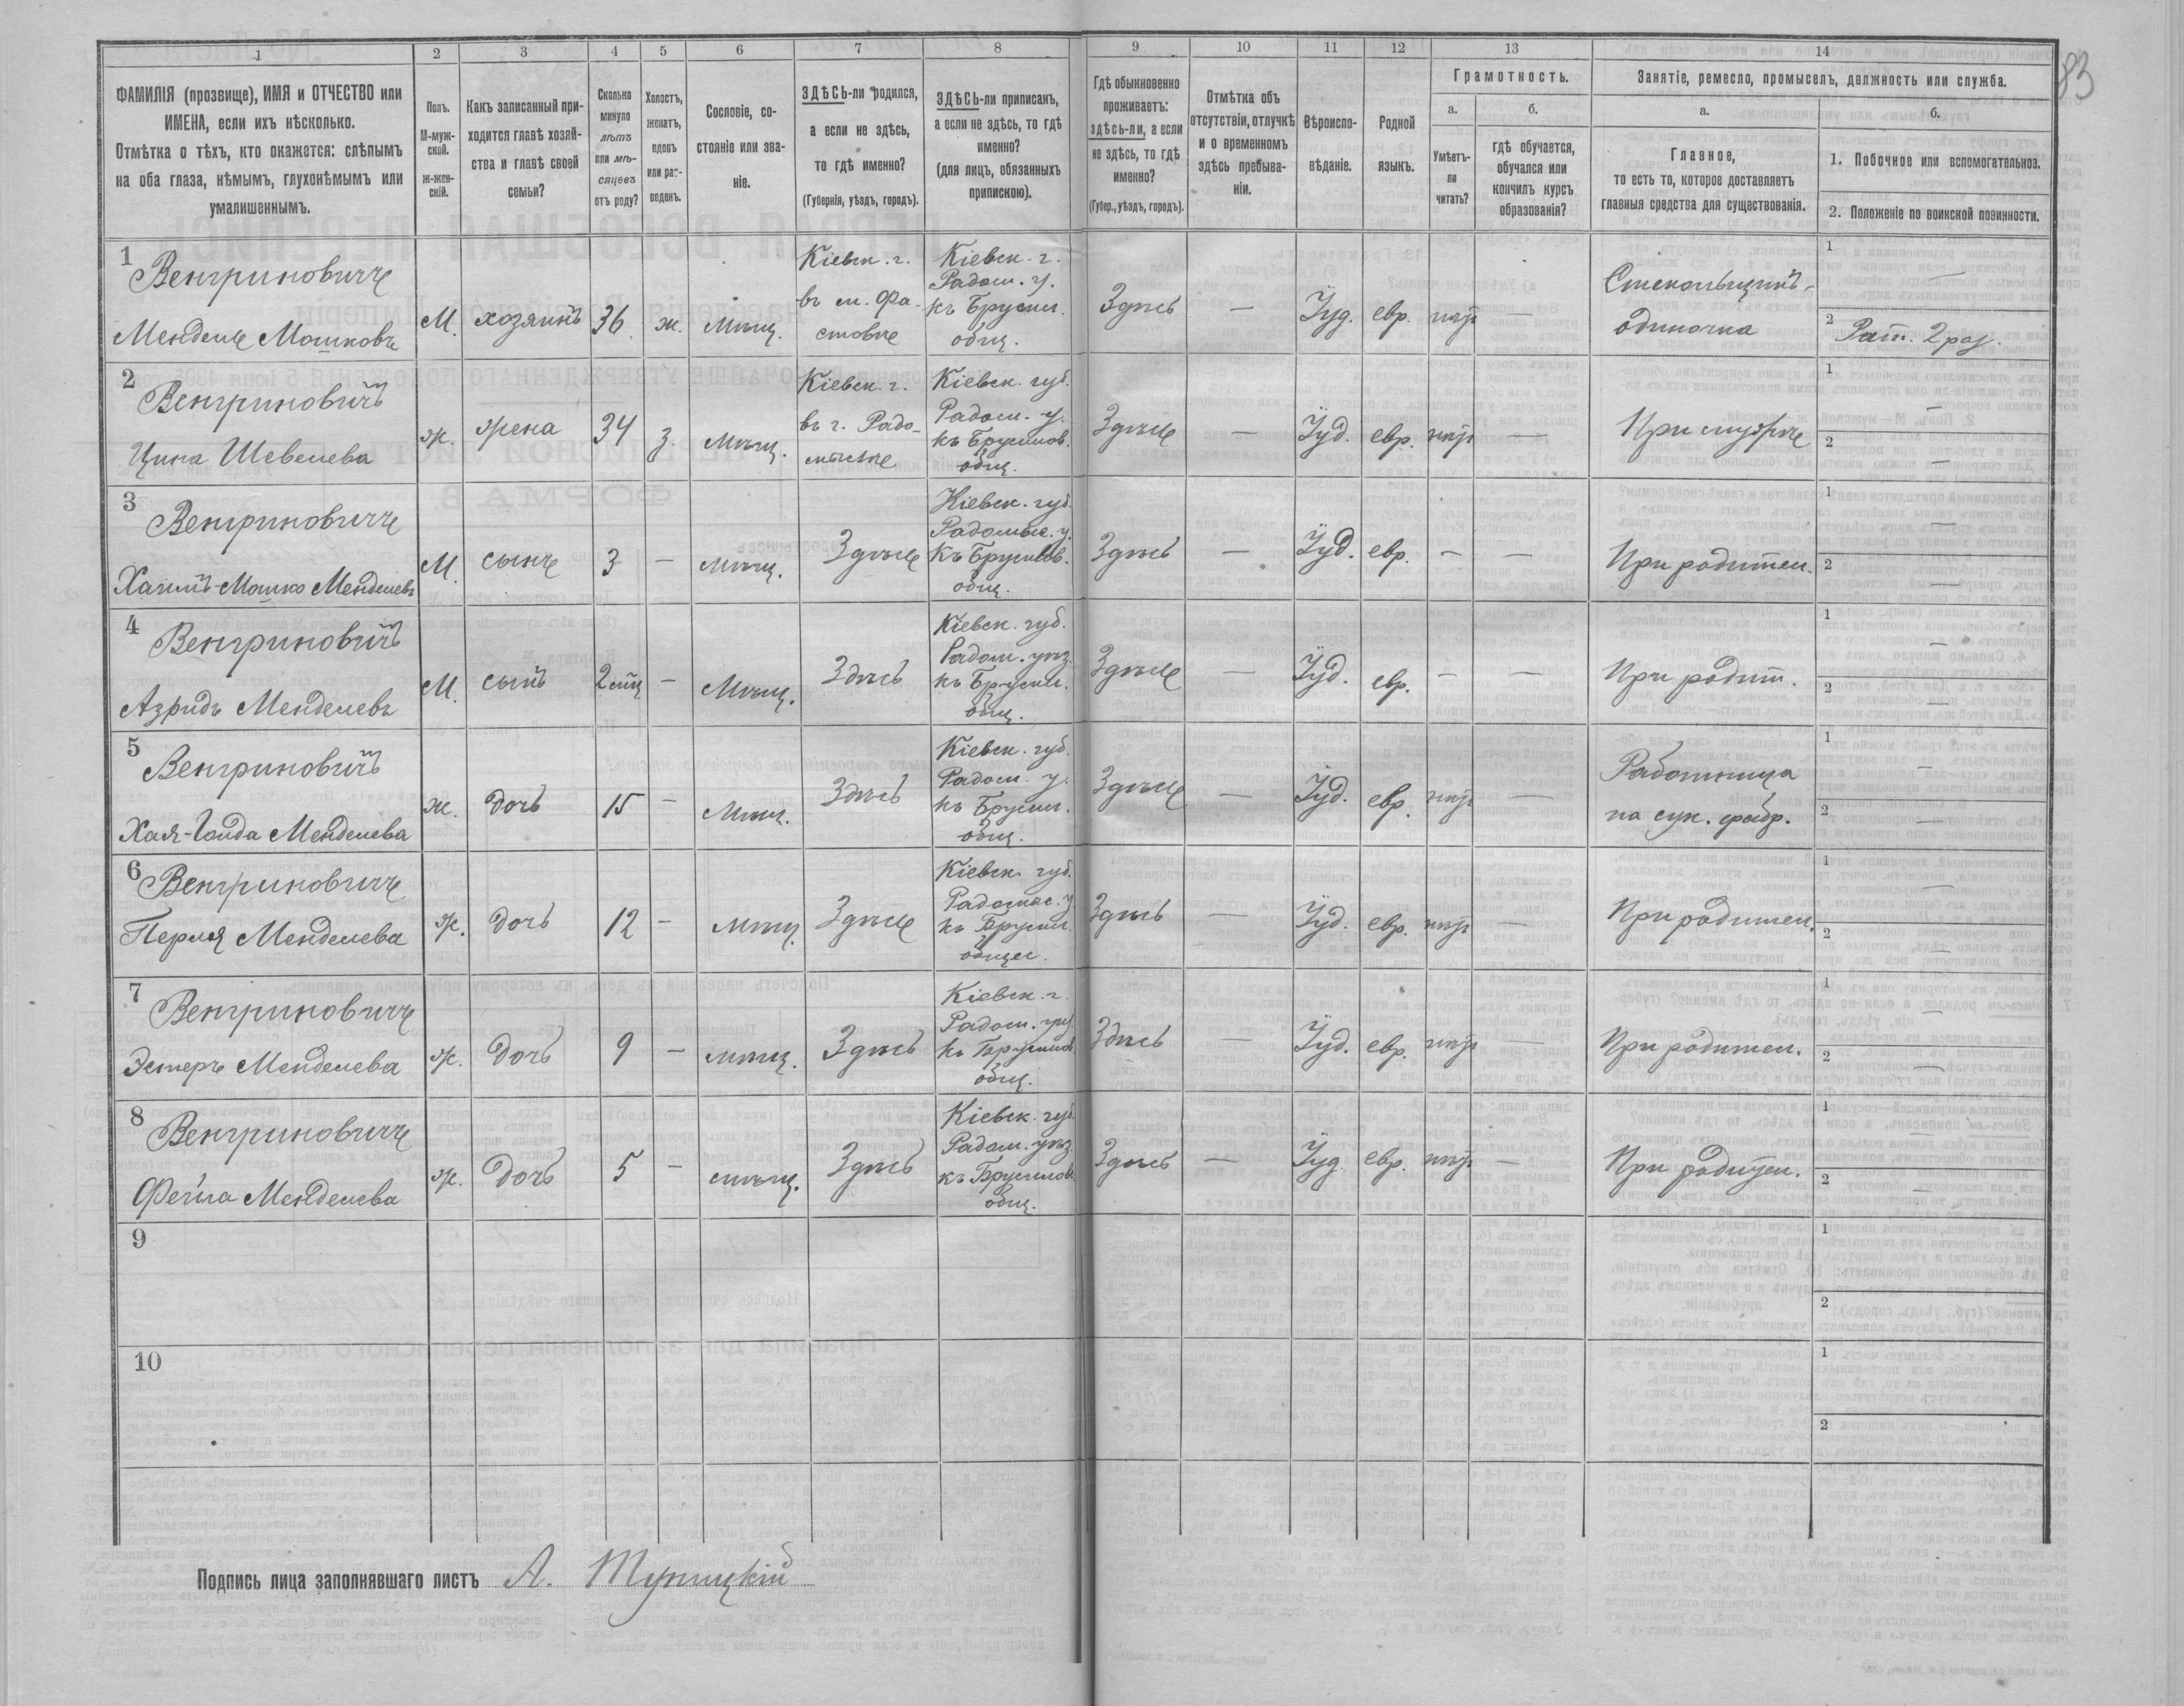 83
1 2 3 4 5 6 7 8 9 10 11 12 13 14
ФАМИЛІЯ (прозвище), ИМЯ и ОТЧЕСТВО или
ИМЕНА, если ихъ нѣсколько.
Отмѣтка о тѣхъ, кто окажется: слѣпымъ
на оба глаза, нѣмымъ, глухонѣмымъ или
умалишеннымъ.
Полъ.
М-муж-
ской.
Ж-жен-
скій.
Какъ записанный при-
ходится главѣ хозяй-
ства и главѣ своей
семьи?
Сколько
минуло
лѣтъ
или мѣ-
сяцевъ
отъ роду?
Холостъ,
женатъ,
вдовъ
или раз-
веденъ.
Сословіе, со-
стояніе или зва-
ніе.
ЗДѢСЬ-ли родился,
а если не здѣсь,
то гдѣ именно?
(Губернія, уѣздъ, городъ).
ЗДѢСЬ-ли приписанъ,
а если не здѣсь, то гдѣ
именно?
(для лицъ, обязанныхъ
припискою).
Гдѣ обыкновенно
проживаетъ:
здѣсь-ли, а если
не здѣсь, то гдѣ
именно?
(Губер., уѣздъ, городъ).
Отмѣтка объ
отсутствіи, отлучкѣ
и о временномъ
здѣсь пребыва-
ніи.
Вѣроиспо-
вѣданіе.
Родной
языкъ.
Грамотность.
а.
Умѣетъ-
ли
читать?
б.
гдѣ обучается,
обучался или
кончилъ курсъ
образованія?
Занятіе, ремесло, промыселъ, должность или служба.
а.
Главное,
то есть то, которое доставляетъ
главныя средства для существованія.
б.
1. Побочное или вспомогательное.
2. Положеніе по воинской повинности.
1
Венгриновичъ
Мендель Мошковъ
М. хозяинъ 36 ж. мѣщ.
Кіевск. г.
въ м. Фа-
стовѣ
Кіевск. г.
Радом. у.
къ Брусил.
общ.
Здѣсь — Іуд. евр. нѣтъ —
Стекольщикъ-
одиночка
1 —
2 Рат. 2 раз.
2
Венгриновичъ
Цина Шевелева
ж. жена 34 з. мѣщ.
Кіевск. г.
въ г. Радо-
мыслѣ
Кіевск. губ.
Радом. у.
къ Брусилов.
общ.
Здѣсь — Іуд. евр. нѣтъ —
При мужѣ
1 —
2 —
3
Венгриновичъ
Хаимъ-Мошко Менделевъ
М. сынъ 3 — мѣщ. Здѣсь
Кіевск. губ.
Радомыс. у.
Къ Брусилов.
общ.
Здѣсь — Іуд. евр. — —
При родител.
1 —
2 —
4
Венгриновичъ
Менделевъ
М. сынъ — Мѣщ. Здѣсь
Кіевск. губ.
Радом. уѣз.
къ Брусил.
общ.
Здѣсь — Іуд. евр. — —
При родит.
1 —
2 —
5
Венгриновичъ
Хая-Голда Менделева
ж. дочь 15 — Мѣщ. Здѣсь
Кіевск. губ.
Радом. у.
къ Брусил.
общ.
Здѣсь — Іуд. евр. нѣтъ —
Работница
на сук. фабр.
1 —
2 —
6
Венгриновичъ
Перля Менделева
ж. дочь 12 — мѣщ. Здѣсь
Кіевск. губ.
Радомыс. у.
къ Брусил.
общес.
Здѣсь — Іуд. евр. нѣтъ —
При родител.
1 —
2 —
7
Венгриновичъ
Эстеръ Менделева
ж. дочь 9 — мѣщ. Здѣсь
Кіевск. г.
Радом. уѣз.
къ Брусилов.
общ.
Здѣсь — Іуд. евр. нѣтъ —
При родител.
1 —
2 —
8
Венгриновичъ
Фейга Менделева
ж. дочь 5 — мѣщ. Здѣсь
Кіевск. губ.
Радом. уѣз.
къ Брусилов.
общ.
Здѣсь — Іуд. евр. нѣтъ —
При родител.
1 —
2 —
9
1
2
10
1
2
Подпись лица заполнявшаго листъ А. Туницкій